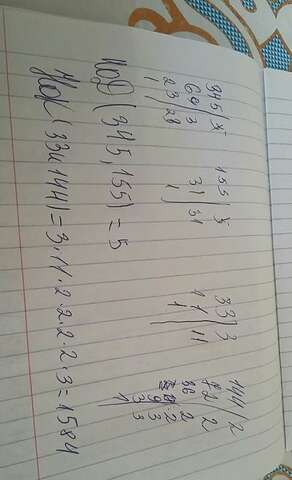 345 | 5   155 | 5   33 | 3   144 | 2
69 | 3   31 | 31   11 | 11   72 | 2
23 | 23   1   1   36 | 2
1   18 | 2
9 | 3
3 | 3
1
НОД (345, 155) = 5
НОК (33и144) = 3 · 11 · 2 · 2 · 2 · 2 · 3 = 1584